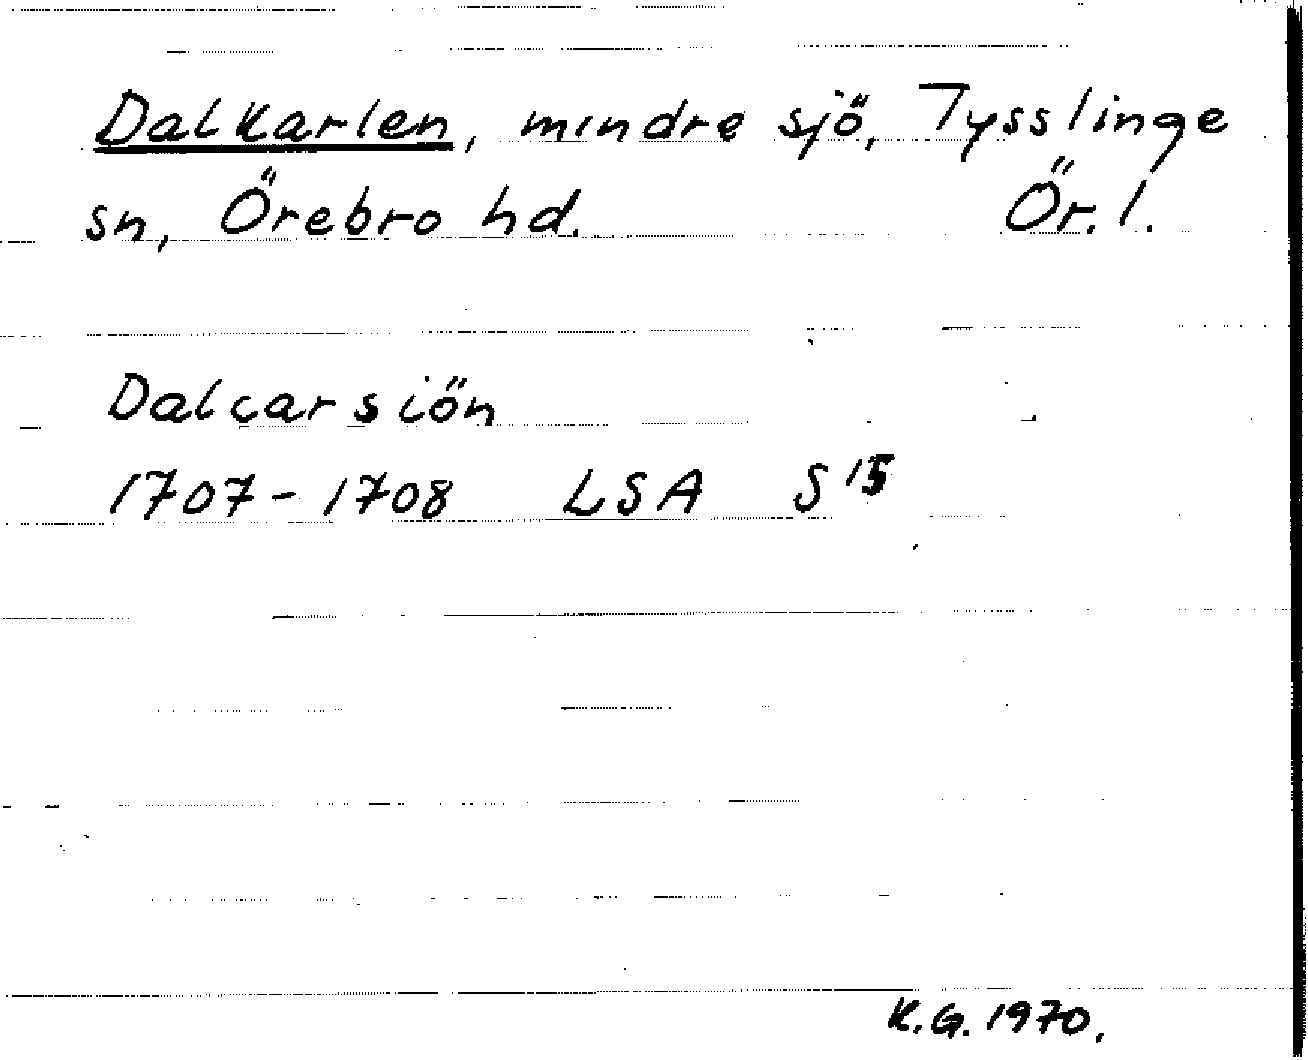 Dalkarlen, mindre sjö, Tysslinge
sn, Örebro hd. Ör. l.
Dalcarsiön
1707-1708 LSA S 15
K.G. 1970.